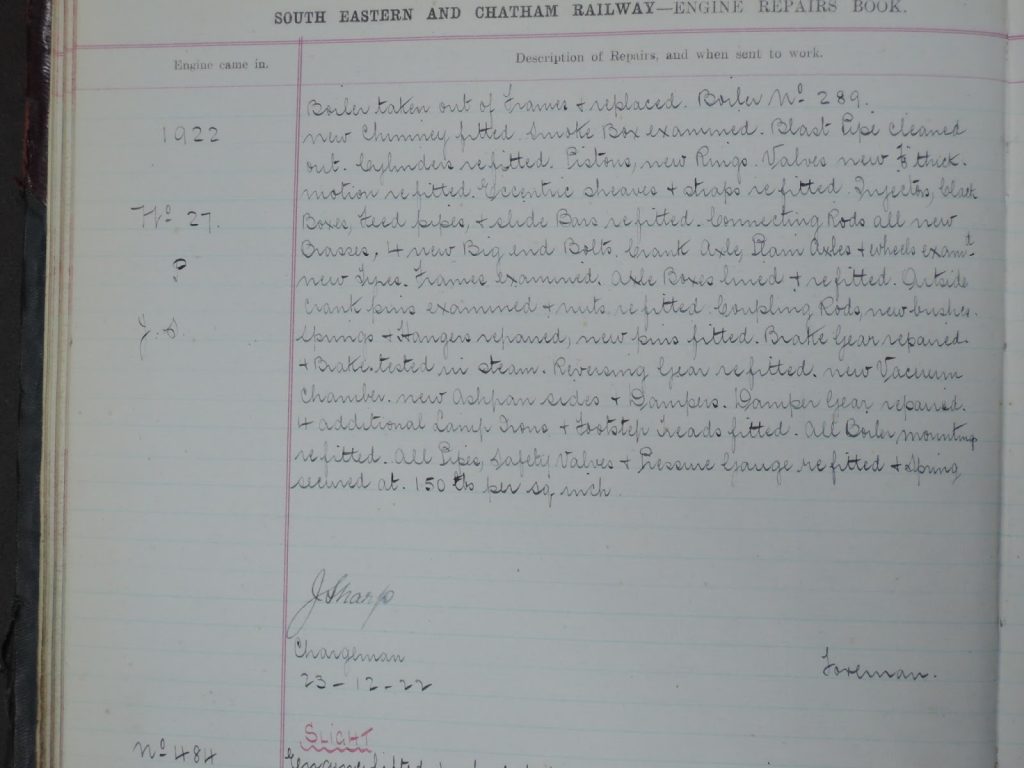 SOUTH EASTERN AND CHATHAM RAILWAY—ENGINE REPAIRS BOOK.
Engine came in.
Description of Repairs, and when sent to work.
1922
No 27.
?
J. S.
Boiler taken out of Frames + replaced. Boiler No 289.
new Chimney fitted. Smoke Box examined. Blast Pipe cleaned
out. Cylinders refitted. Pistons, new Rings. Valves new thick.
motion refitted. Eccentric sheaves + straps refitted. Injectors, clack
Boxes, Feed pipes, + slide Bars refitted. Connecting Rods all new
Brasses, 4 new Big end Bolts. Crank Axle, Plain Axles + wheels examd
new Tyres. Frames examined. Axle Boxes lined + refitted. Outside
crank pins examined + nuts refitted. Coupling Rods, new bushes.
Springs + Hangers repaired, new pins fitted. Brake Gear repaired.
+ Brake tested in steam. Reversing Gear refitted. new Vacuum
Chamber. new Ashpan sides + Dampers. Damper Gear repaired.
4 additional Lamp Irons + Footstep Treads fitted. All Boiler mounting
refitted. All Pipes, Safety Valves + Pressure Gauge refitted + Spring
secured at. 150 lbs per sq inch.
J Sharp
Chargeman
Foreman.
23-12-22
SLIGHT
No 484